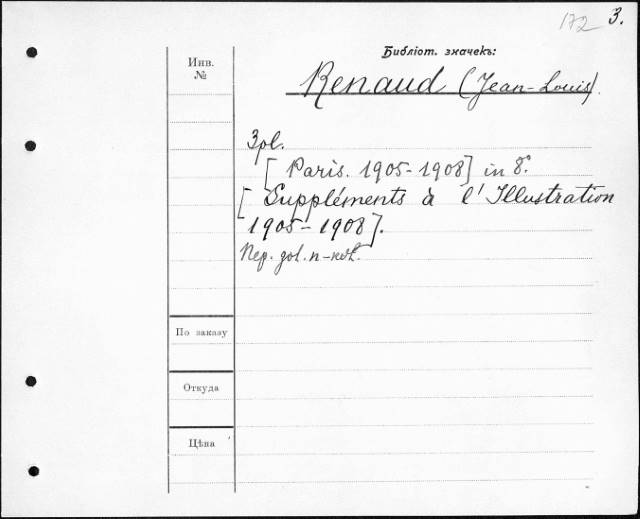 172 3.
Библіот. значекъ:
Инв.
№
Renaud (Jean-Louis).
3pl.
[Paris. 1905-1908] in 8.°
[Suppléments à l'Illustration
1905-1908].
По заказу
Откуда
Цѣна